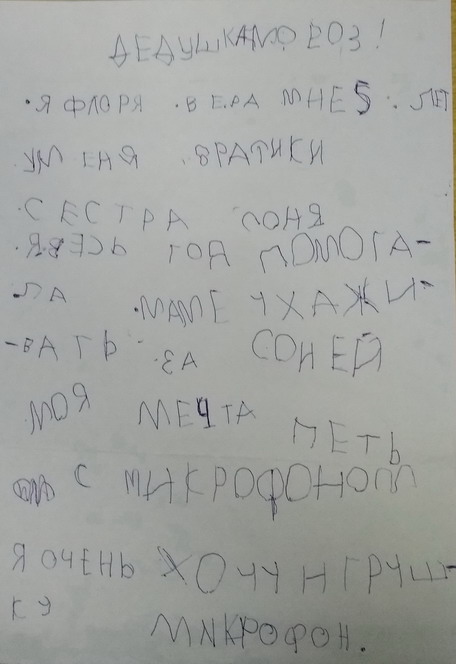 ДЕДУШКАМОРОЗ!
Я ФЛОРЯ ВЕРА МНЕ 5 ЛЕТ
УМЕНЯ БРАТИКИ
СЕСТРА СОНЯ
Я ВЕСЬ ГОД ПОМОГА-
ЛА МАМЕ УХАЖИ-
-ВАТЬ ЗА СОНЕЙ
МОЯ МЕЧТА ПЕТЬ
С МИКРОФОНОМ
Я ОЧЕНЬ ХОЧУ ИГРУШ-
КУ МИКРОФОН.